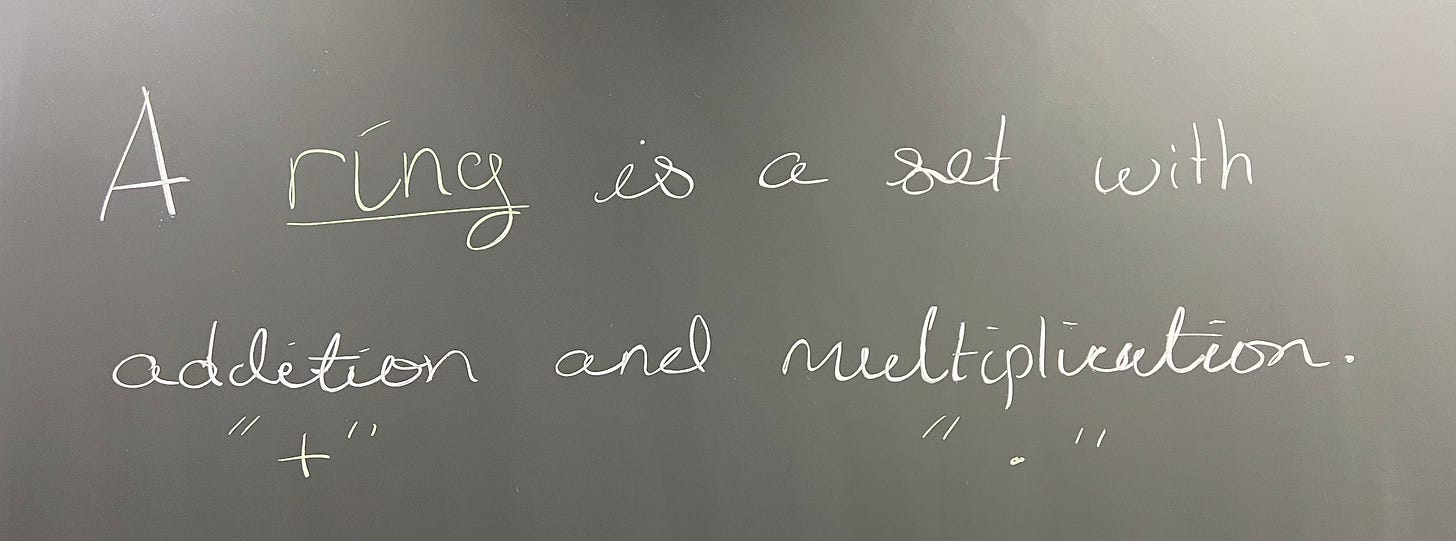 A ring is a set with
addition and multiplication.
"+" "."